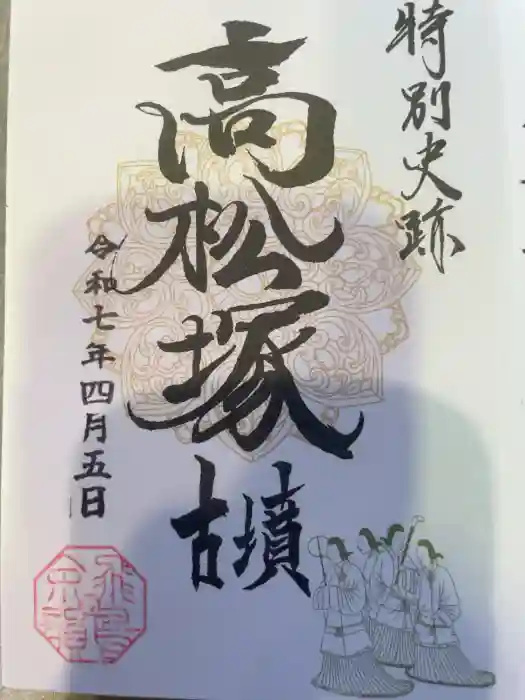 特別史跡
高松塚
古墳
令和七年四月五日